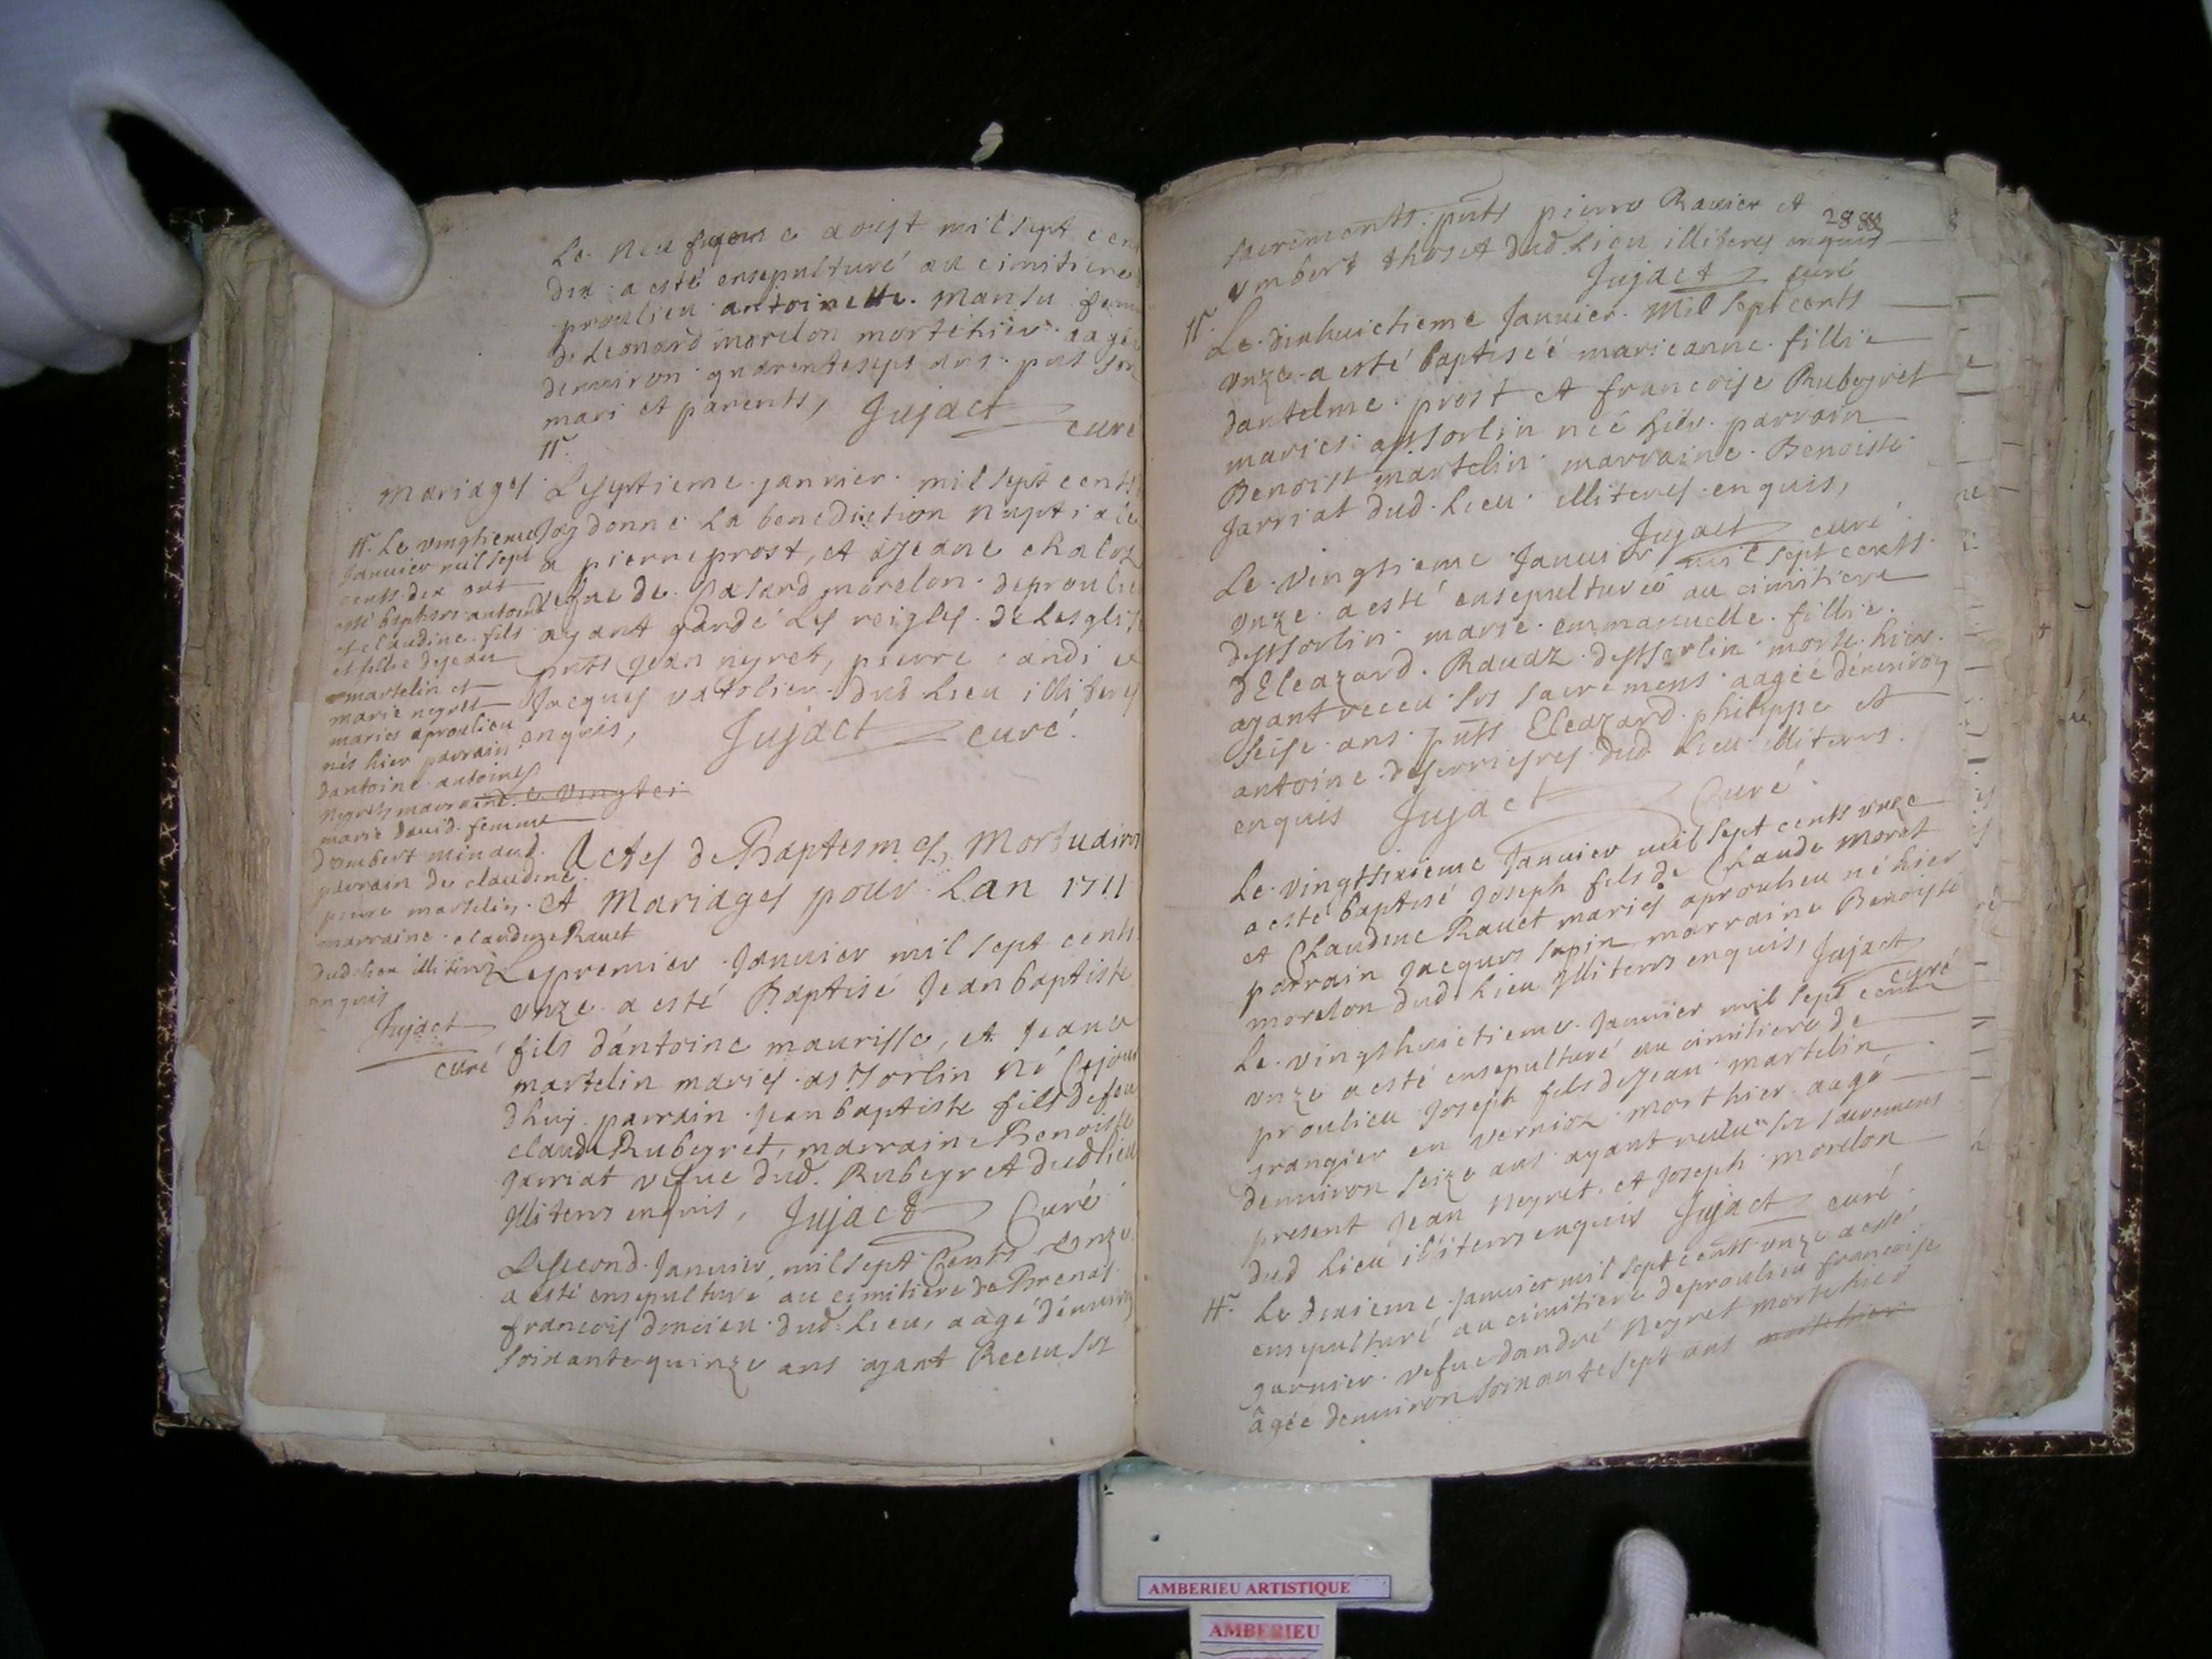 Le neufieme aoust mil sept cent
dix a esté ensepulturé au cimitiere
proulieu antoinette mansu fem
de Leonard morelon morte hier aagé
denuiron quarentesept ans pnts son
mari et parents, Jujact curé
Mariages Le septieme janvier mil sept cents
Jay donné La benediction nuptiale
a pierre prost, et a Jeane chaloz
vefue de Salard morelon de proulieu
ayant gardé Les reigles de Lesglise
pnts Jean neyret, pierre candi et
Jacques vatolier dud Lieu illiteres
enquis, Jujact curé.
Le vingtieme
Janvier mil sept
cents dix ont
esté baptises antoine
et claudine fils
et fille de Jean
martelin et
marie neyret
maries a proulieu
nés hier parrain
dantoine antoine
Neyret marraine
marie david femme
dombert minaud
parrain de claudine
pierre martelin
marraine claudine Rauet
dud Lieu illiteres
enquis
Jujact
curé
Le vingtei
Actes de Baptesmes, Mortuaires
et Mariages pour Lan 1711
Le premier Janvier mil sept cents
vnze a esté Baptisé Jean baptiste
fils dantoine maurisse, et Jeane
martelin maries a sSorlin Né Cejour
dhuy parrain Jean baptiste fils defeu
claude Rubeyret, marraine Benoiste
Jarriat vefue dud. Rubeyret dud lieu
Illiteres enquis, Jujact Curé
Le second Janvier mil sept Cents vnze
a esté ensepulturé au cimitiere de Brenas
francois doncieu dud. Lieu, aagé dénuiron
soixantequinze ans ayant Receu ses
288
sacréments. pnts pierre Rauier et
vmbert thoset dud. Lieu illiteres enquis
Jujact curé
Le dixhuictieme Janvier. Mil sept cents
vnze a esté baptiséé marieanne fillie
dantelme prost et francoise Rubeyret
maries a ssorlin néé hier parrain
Benoist martelin marraine Benoiste
Jarriat dud. Lieu illiteres enquis,
Jujact curé
Le vingtieme Janvier mil sept cents
vnze a esté ensepulturéé au cimitiere
de ssorlin marie emmanuelle fillie
dEleazard Raudaz de ssorlin morte hier
ayant receu ses sacremens aagéé dénuiron
seise ans pnts Eleazard philippe et
antoine desserrieres dud Lieu illiteres
enquis Jujact Curé
Le vingtsixieme Janvier mil sept cents vnze
a esté baptisé Joseph fils de Claude moret
et Claudine Rauet maries a proulieu né hier
parrain Jacques sapin marraine Benoiste
morelon dud Lieu Illiteres enquis, Jujact
curé
Le vingthuictieme Janvier mil sept cents
vnze a esté ensepulturé au cimitiere de
proulieu Joseph fils de Jean martelin
grangier en vernioz mort hier aagé
denuiron seize ans ayant receu ses sacremens
present Jean Neyret et Joseph morelon
dud Lieu illiteres enquis Jujact curé
Le dixieme Janvier mil sept cents vnze a esté
ensepulturé au cimitiere de proulieu francoise
garnier vefue dandré Neyret morte hier
âgéé denuiron soixantesept ans morte hier
AMBERIEU ARTISTIQUE
AMBERIEU